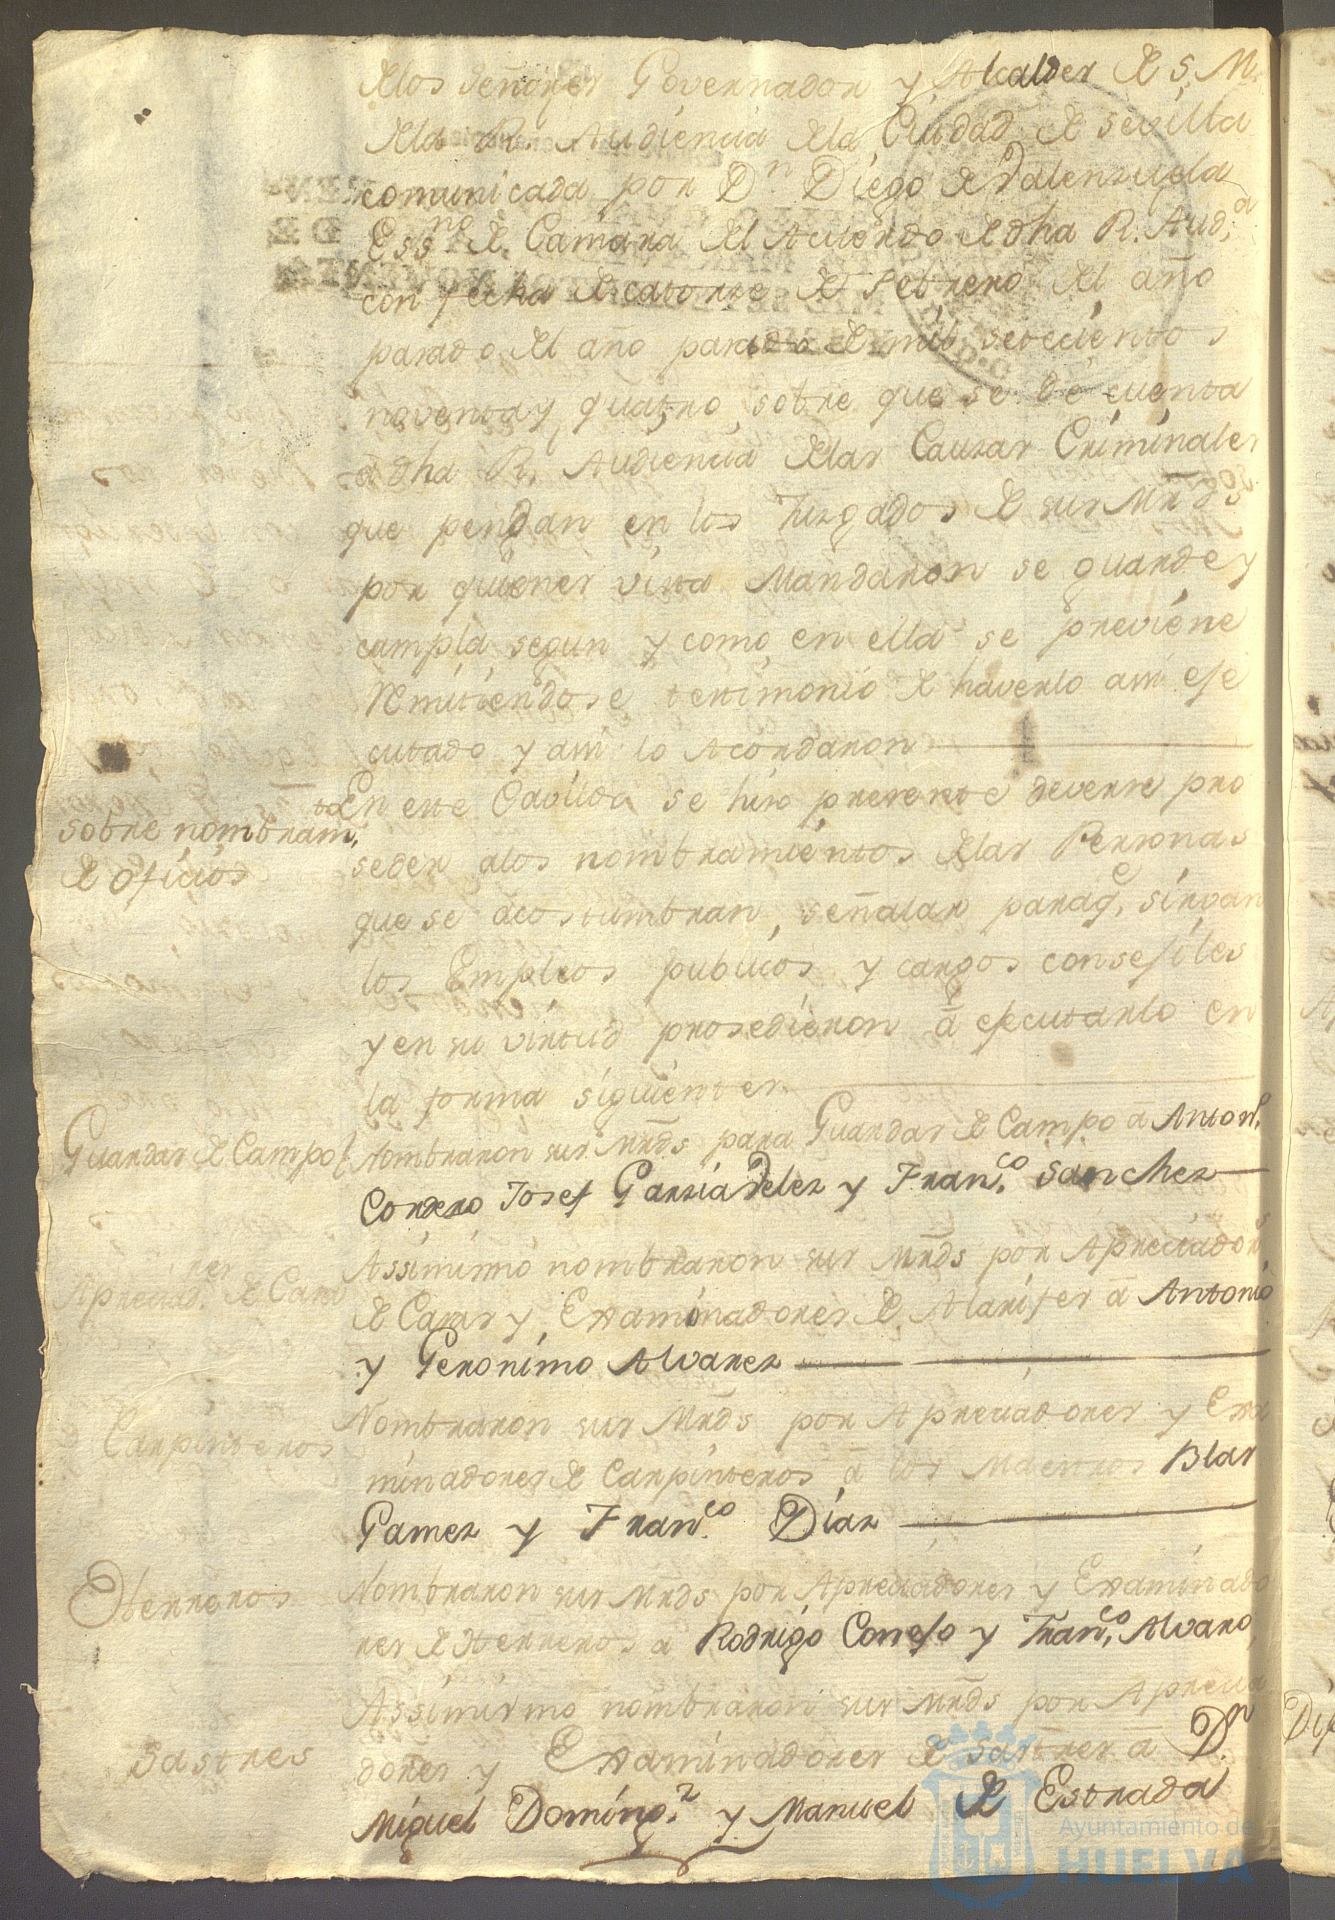 delos Señores Governador y Alcaldes de S. M.
dela R. Audiencia dela Ciudad de Sevilla
comunicada por Dn. Diego de Valenzuela
Essno. de Camara del Acuerdo de dha R. Auda.
con fecha de catorse de Febrero del año
pasado del año pasado de mil setecientos
noventa y quatro, sobre que se dé cuenta
a dha R. Audiencia delas Causas Criminales
que pendan en los Juzgados de sus Mrds
por quienes vista Mandaron se guarde y
campla segun y como en ella se previene
Remitiendose testimonio de haverlo assi eje
cutado y assi lo Acordaron
En este Cavildo se hiso presente deverse pro
sobre nombramto.
de oficios
seder alos nombramientos delas Personas
que se acostumbran, señalar paraqe. sirvan
los Empleos publicos y cargos consejiles
y en su virtud prosedieron â ejecutarlo en
la forma siguiente
Guardas de Campo
Nombraron sus Mrds para Guardas de Campo â Anto.
Cordero Josef Garsia Velez y Franco. Sanchez
Assimismo nombraron sus Mrds por Apreciadors
Apreciadres. de Casas
de Casas y Examinadores de Alarifes â Antonio
y Geronimo Alvarez
Carpinteros
Nombraron sus Mrds por Apreciadores y Exa
minadores de Carpinteros â los Maestros Blas
Gamez y Franco. Diaz
Herreros
Nombraron sus Mrds por Apreciadores y Examinado
res de Herreros a Rodrigo Conejo y Franco. Alvaro,
Assimismo nombraron sus Mrds por Aprecia
Sastres
dores y Examinadores de Sastres â Dn.
Miguel Domingz. y Manuel de Estrada
Ayuntamiento de
HUELVA